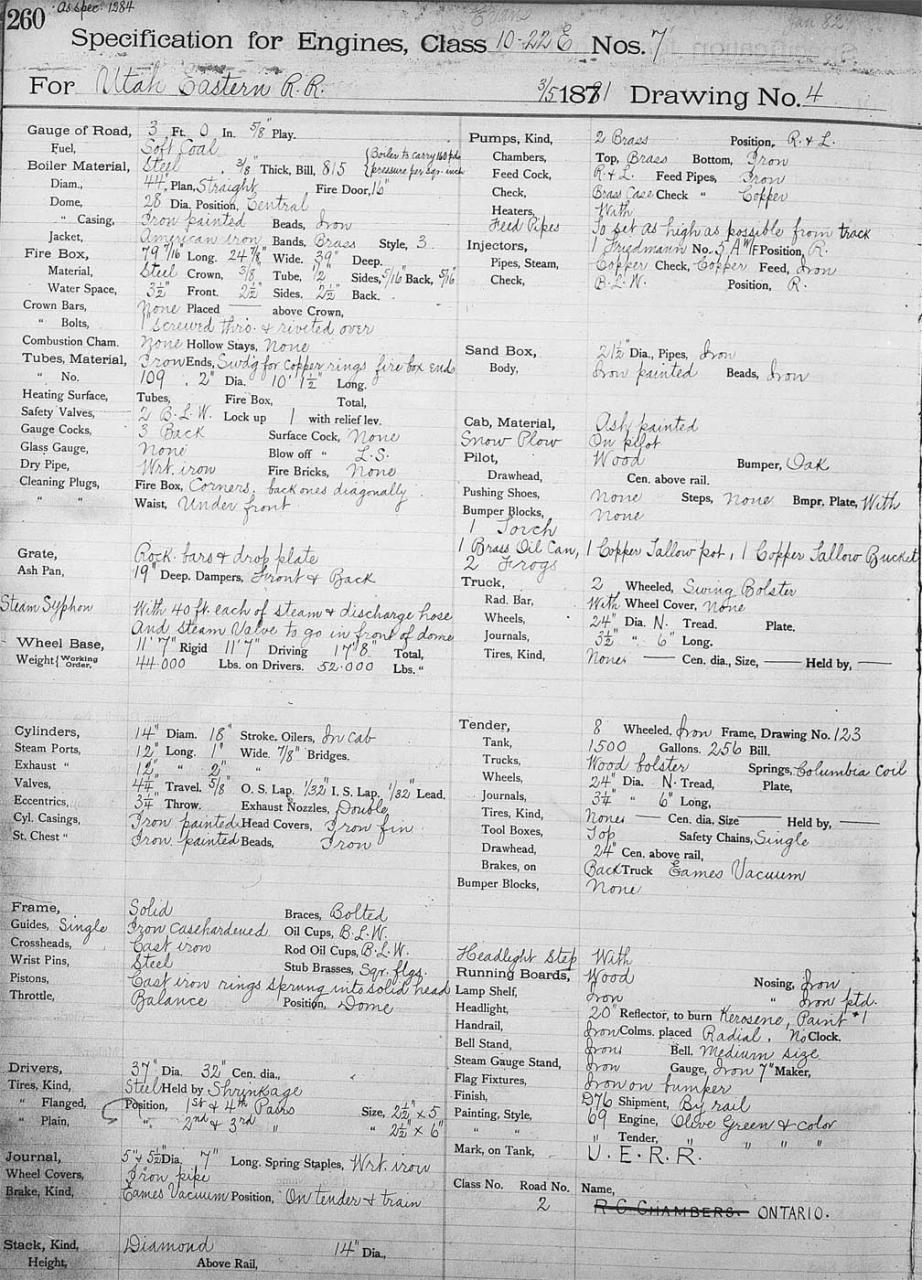 260 As spec. 1284
Specification for Engines, Class 10-22 E Nos. 7
For Utah Eastern R.R. 3/5 1881 Drawing No. 4
Gauge of Road, 3 Ft. 0 In. 5/8" Play.
Fuel, Soft Coal
Boiler Material, Steel 3/8" Thick, Bill, 815 {Boiler to carry 160 pds pressure per sqr. inch
Diam., 44" Plan, Straight Fire Door, 16"
Dome, 28 Dia. Position, Central
" Casing, Iron painted Beads, Iron
Jacket, American iron Bands, Brass Style, 3
Fire Box, 79 7/16" Long. 24 7/8" Wide. 39" Deep.
Material, Steel Crown, 3/8 Tube, 1/2" Sides, 5/16" Back, 5/16"
Water Space, 3½" Front. 2½" Sides. 2½" Back.
Crown Bars, None Placed — above Crown,
" Bolts, 1 screwed thro. & riveted over
Combustion Cham. None Hollow Stays, None
Tubes, Material, Iron Ends, Swd'g for copper rings fire box end
" No. 109 . 2" Dia. 10' 1½" Long.
Heating Surface, Tubes, Fire Box, Total,
Safety Valves, 2 B.L.W. Lock up 1 with relief lev.
Gauge Cocks, 3 Back Surface Cock, None
Glass Gauge, None Blow off " L.S.
Dry Pipe, Wrt. iron Fire Bricks, None
Cleaning Plugs, Fire Box, Corners, back ones diagonally
" " Waist, Under front
Grate, Rock bars & drop plate
Ash Pan, 19" Deep. Dampers, Front & Back
Steam Syphon With 40 ft. each of steam & discharge hose
And steam Valve to go in front of dome
Wheel Base, 11' 7" Rigid 11' 7" Driving 17' 8" Total,
Weight {Working Order, 44000 Lbs. on Drivers. 52.000 Lbs. "
Cylinders, 14" Diam. 18" Stroke. Oilers, In cab
Steam Ports, 12" Long. 1" Wide. 7/8" Bridges.
Exhaust " 12" " 2" "
Valves, 4¼" Travel. 5/8" O. S. Lap. 1/32" I. S. Lap. 1/32" Lead.
Eccentrics, 3¼" Throw. Exhaust Nozzles, Double
Cyl. Casings, Iron painted Head Covers, Iron fin
St. Chest " Iron painted Beads, Iron
Frame, Solid Braces, Bolted
Guides, Single Iron casehardened Oil Cups, B.L.W.
Crossheads, Cast iron Rod Oil Cups, B.L.W.
Wrist Pins, Steel Stub Brasses, Sqr. flgs.
Pistons, Cast iron rings sprung into solid head
Throttle, Balance Position, Dome
Drivers, 37" Dia. 32" Cen. dia.,
Tires, Kind, Steel Held by Shrinkage
" Flanged, Position, 1st & 4th Pairs Size, 2½" x 5
" Plain, " 2nd & 3rd " " 2½" x 6"
Journal, 5" & 5½ Dia. 7" Long. Spring Staples, Wrt. iron
Wheel Covers, Iron pipe
Brake, Kind, Eames Vacuum Position, On tender & train
Stack, Kind, Diamond 14" Dia.,
Height, Above Rail,
Pumps, Kind, 2 Brass Position, R. & L.
Chambers, Top, Brass Bottom, Iron
Feed Cock, R. & L. Feed Pipes, Iron
Check, Brass Case Check " Copper
Heaters, With
Feed Pipes To set as high as possible from track
Injectors, 1 Friedmann No. 5 Position, R.
Pipes, Steam, Copper Check, Copper Feed, Iron
Check, B.L.W. Position, R.
Sand Box, 21½" Dia., Pipes, Iron
Body, Iron painted Beads, Iron
Cab, Material, Ash painted
Snow Plow On pilot
Pilot, Wood Bumper, Oak
Drawhead, Cen. above rail.
Pushing Shoes, None Steps, None Bmpr. Plate, With
Bumper Blocks, None
1 Torch
1 Brass Oil Can, 1 Copper Tallow pot, 1 Copper Tallow Bucket
2 Frogs
Truck, 2 Wheeled, Swing Bolster
Rad. Bar, With Wheel Cover, None
Wheels, 24" Dia. N. Tread. Plate.
Journals, 3½ " 6" Long,
Tires, Kind, None — Cen. dia., Size, — Held by, —
Tender, 8 Wheeled, Iron Frame, Drawing No. 123
Tank, 1500 Gallons. 256 Bill.
Trucks, Wood bolster Springs, Columbia Coil
Wheels, 24" Dia. N. Tread, Plate,
Journals, 3¼ " 6" Long,
Tires, Kind, None — Cen. dia. Size — Held by, —
Tool Boxes, Top Safety Chains, Single
Drawhead, 24" Cen. above rail,
Brakes, on Back Truck Eames Vacuum
Bumper Blocks, None
Headlight step With
Running Boards, Wood Nosing, Iron
Lamp Shelf, Iron " Iron ptd.
Headlight, 20" Reflector, to burn Kerosene, Paint #1
Handrail, Iron Colms. placed Radial. No Clock.
Bell Stand, Iron Bell. Medium size
Steam Gauge Stand, Iron Gauge, Iron 7" Maker,
Flag Fixtures, Iron on bumper
Finish, D76 Shipment, By rail
Painting, Style, 69 Engine, Olive Green & color
" " " Tender, " " " "
Mark, on Tank, U.E.R.R.
Class No. Road No. Name,
2 R C CHAMBERS. ONTARIO.